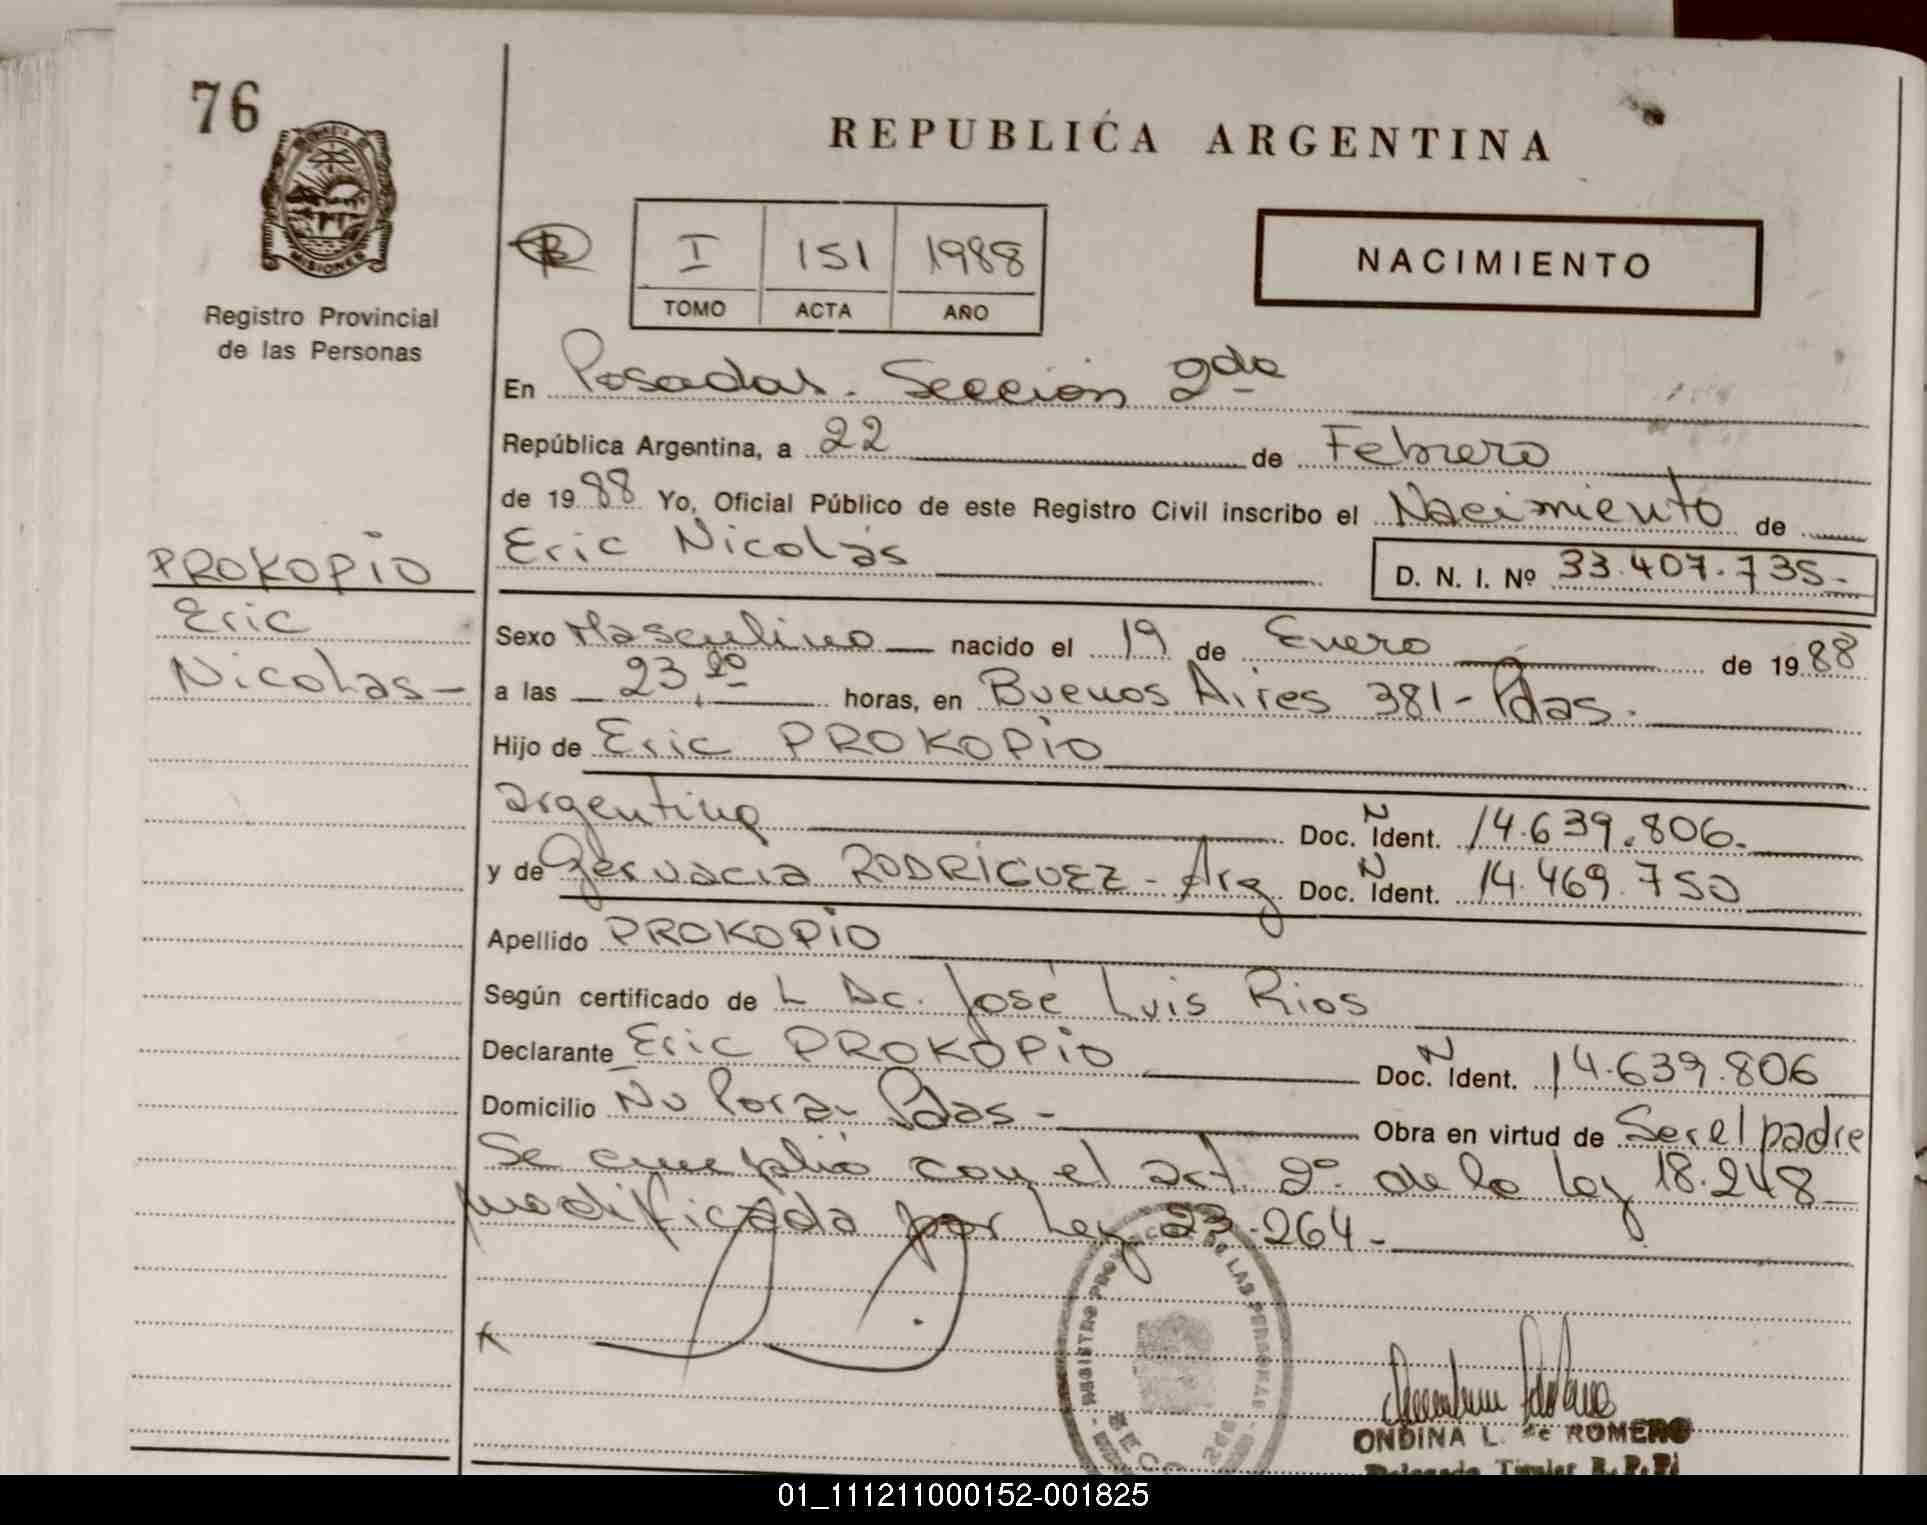 76
MISIONES
Registro Provincial
de las Personas
REPUBLICA ARGENTINA
I 151 1988
TOMO ACTA AÑO
NACIMIENTO
En Posadas. Sección 2da
República Argentina, a 22 de Febrero
de 1988 Yo, Oficial Público de este Registro Civil inscribo el Nacimiento de
Eric Nicolás D. N. I. Nº 33.407.735.-
PROKOPIO
Eric
Nicolas-
Sexo Masculino nacido el 19 de Enero de 1988
a las 23 horas, en Buenos Aires 381- Pdas.
Hijo de Eric PROKOPIO
argentino Doc. N Ident. 14.639.806.
y de Gervacia RODRIGUEZ - Arg Doc. N Ident. 14.469.750
Apellido PROKOPIO
Según certificado de L Dc. José Luis Rios
Declarante Eric PROKOPIO Doc. N Ident. 14.639.806
Domicilio Ñu Pora- Pdas - Obra en virtud de Ser el padre
Se cumplió con el art 2º de la Ley 18.248
modificada por Ley 23.264 -
REGISTRO PROVINCIAL DE LAS PERSONAS
ONDINA L. de ROMERO
Delegada Titular R. P. P.
01_111211000152-001825